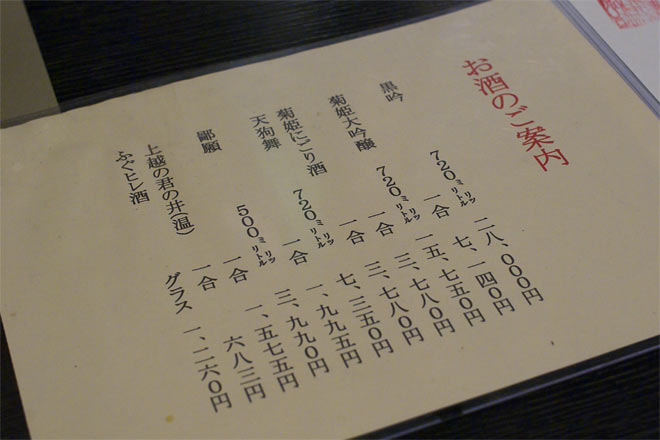 お酒のご案内
黒吟 720ミリリットル 二八、000円
一合 七、一四0円
菊姫大吟醸 720ミリリットル 一五、七五0円
一合 三、七八0円
菊姫にごり酒 一合 三、七八0円
天狗舞 720ミリリットル 七、三五0円
一合 一、九九五円
鄙願 500ミリリットル 三、九九0円
一合 一、五七五円
上越の君の井(温) 一合 六八三円
ふぐヒレ酒 グラス 一、二六0円